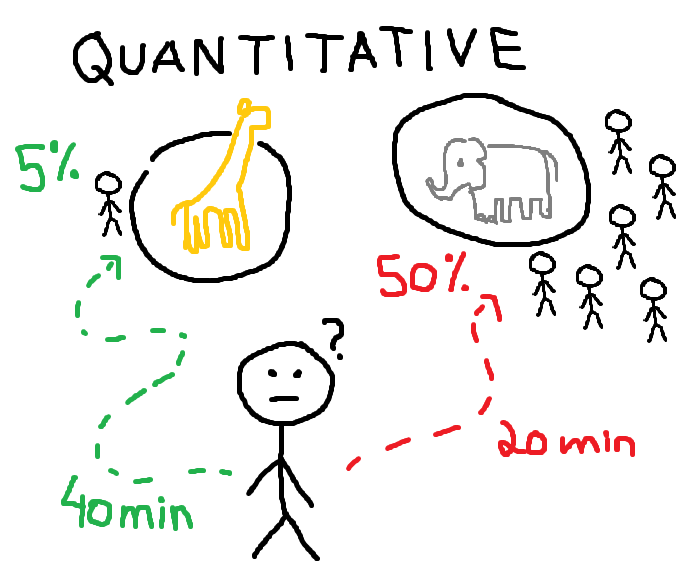 QUANTITATIVE
5%
50%
?
20min
40min